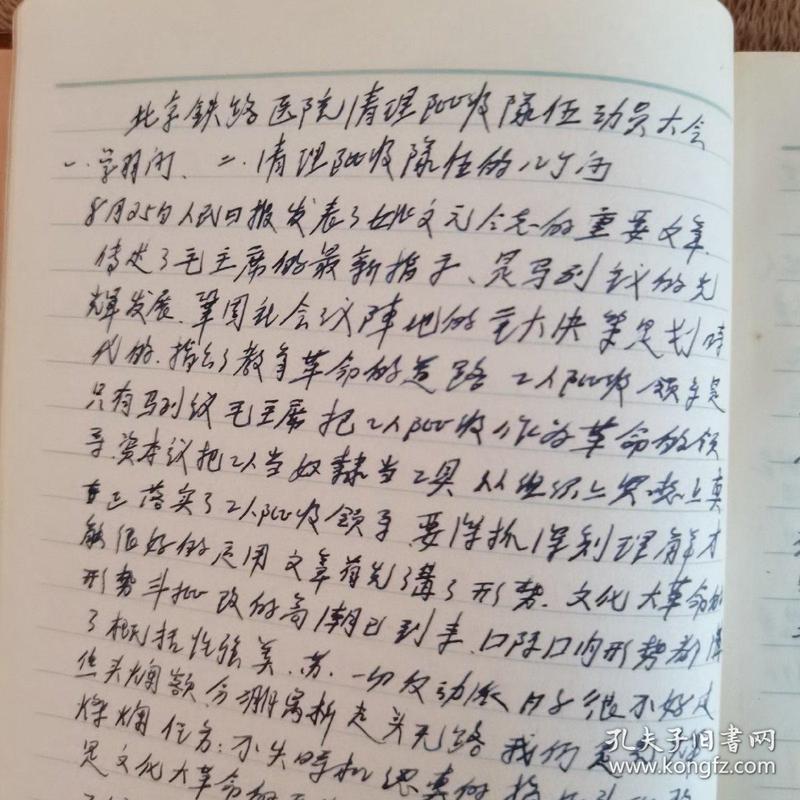 北京铁路医院清理阶级隊伍动员大会
一.学习问、二.清理阶级隊伍的几个问
8月25日人民日报发表了姚文元同志的重要文章.
传达了毛主席的最新指示、是马列主议的光
輝发展.巩固社会主议陣地的重大决策是划時
代的.指出了教育革命的道路 工人阶级领导是
只有马列主议毛主席把工人阶级作为革命的领
导.资本议把工人当奴隸当工具 从组织上思想上真
正落实了工人阶级领导.要深抓深刻理解才
能很好的应用 文章首先了講了形势.文化大革命的
形势斗批改的高潮已到来.口际口内形势都
了概括性 美.苏.一切反动派日子很不好过
焦头烂额.分崩离析走头无路 我们
燦烂 方:不失時机 真的
是文化大革命的
孔夫子旧书网
www.kongfz.com